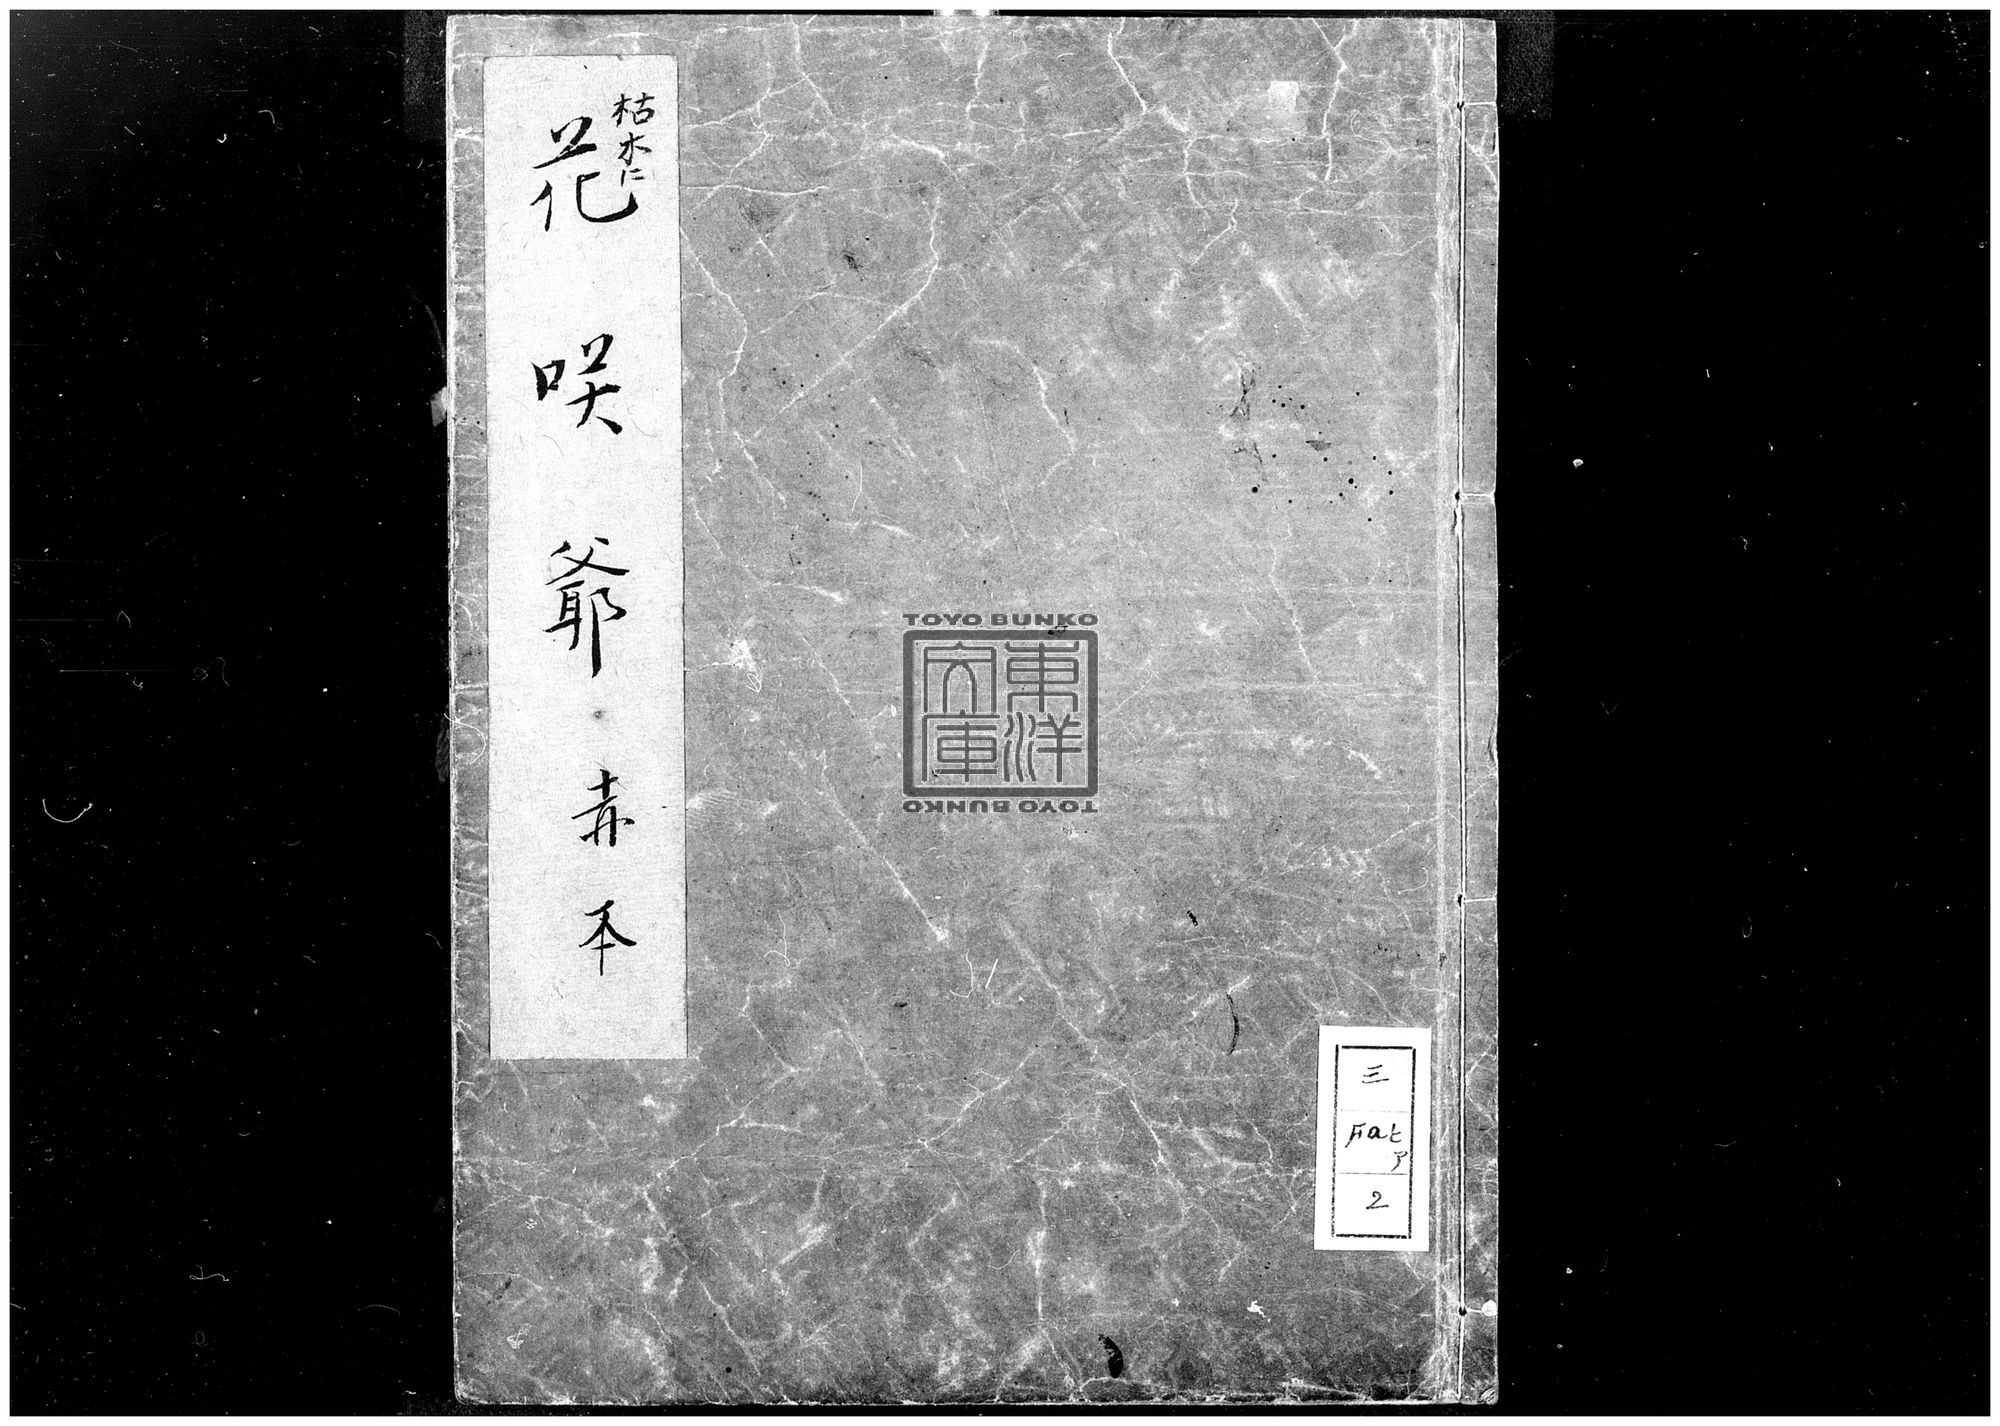 枯木に
花咲爺 赤本
TOYO BUNKO
東洋文庫
TOYO BUNKO
三
Faヒ
ア
2